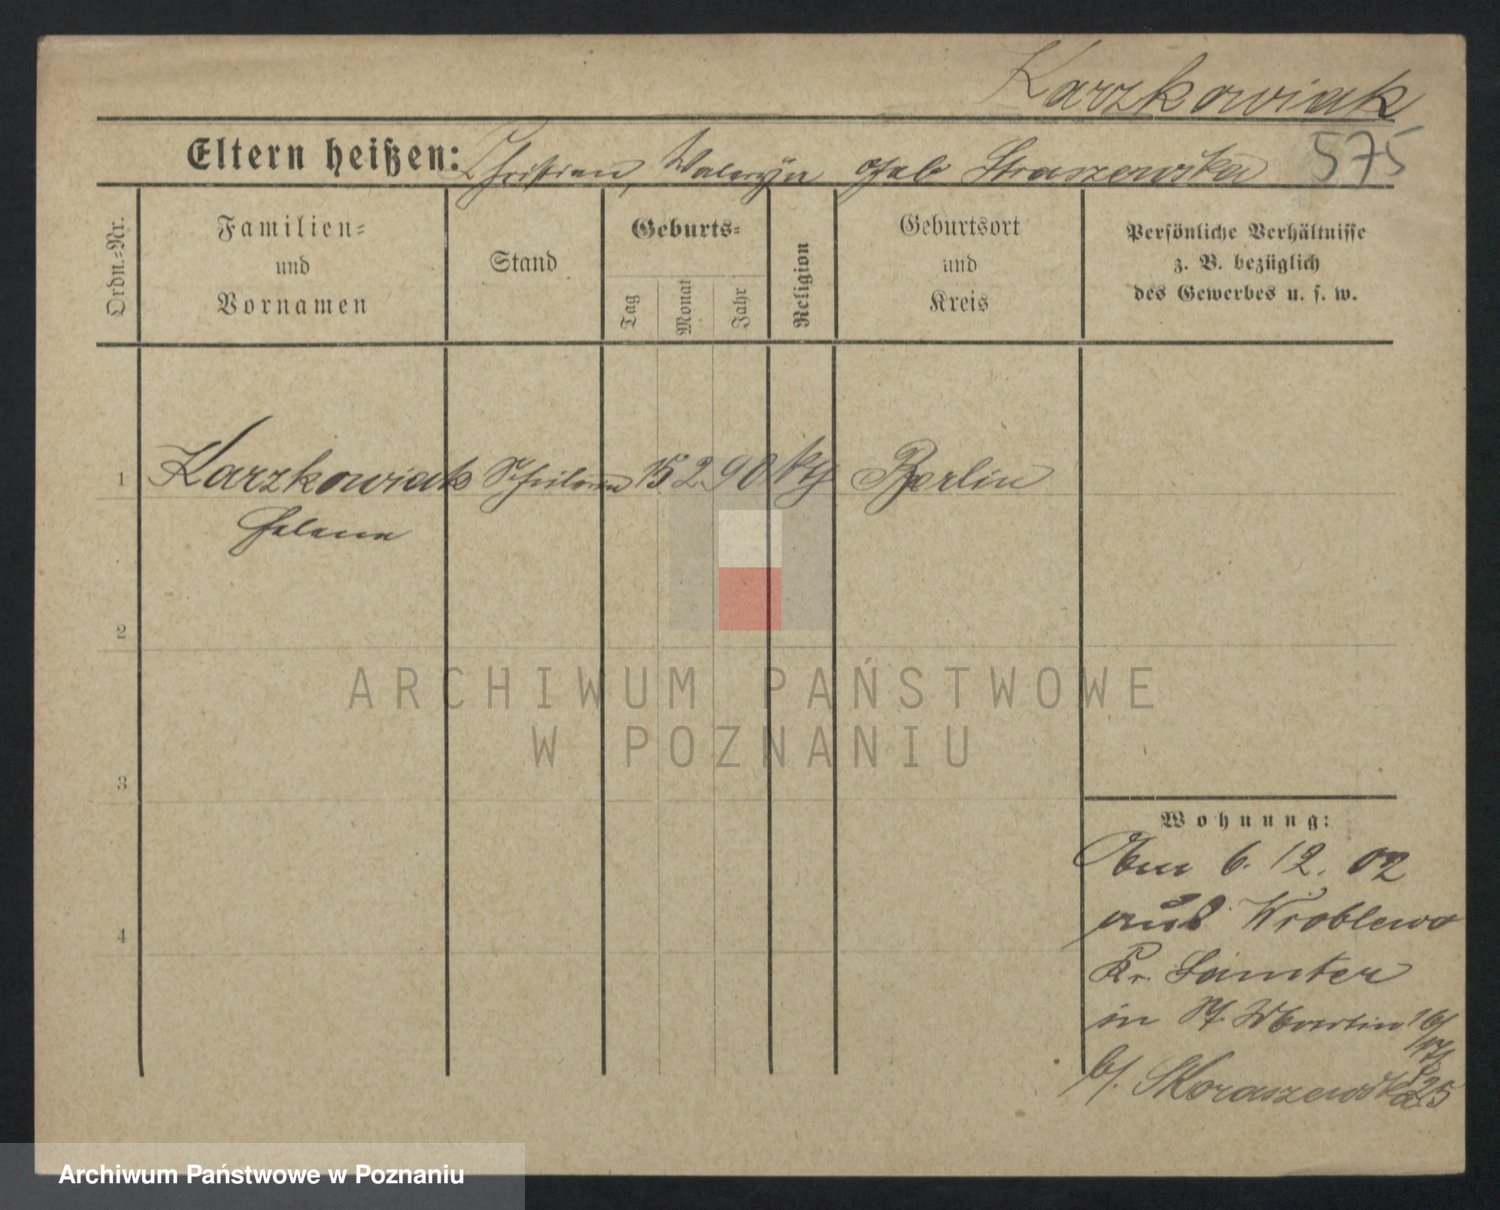 Karzkowiak
Eltern heißen: Christian, Waleryn geb Straszewska 575
Ordn.-Nr.
Familien- und Vornamen
Stand
Geburts-
Tag Monat Jahr
Religion
Geburtsort und Kreis
Persönliche Verhältnisse
z. B. bezüglich
des Gewerbes u. s. w.
1 Karzkowiak Schülerin 15 2 90 kg Berlin
Helena
2
ARCHIWUM PAŃSTWOWE
W POZNANIU
3
Wohnung:
Am 6. 12. 02
aus Wroblewo
4
Kr. Samter
in St. Martin 16/17
b/. Skoraszewska 25
Archiwum Państwowe w Poznaniu